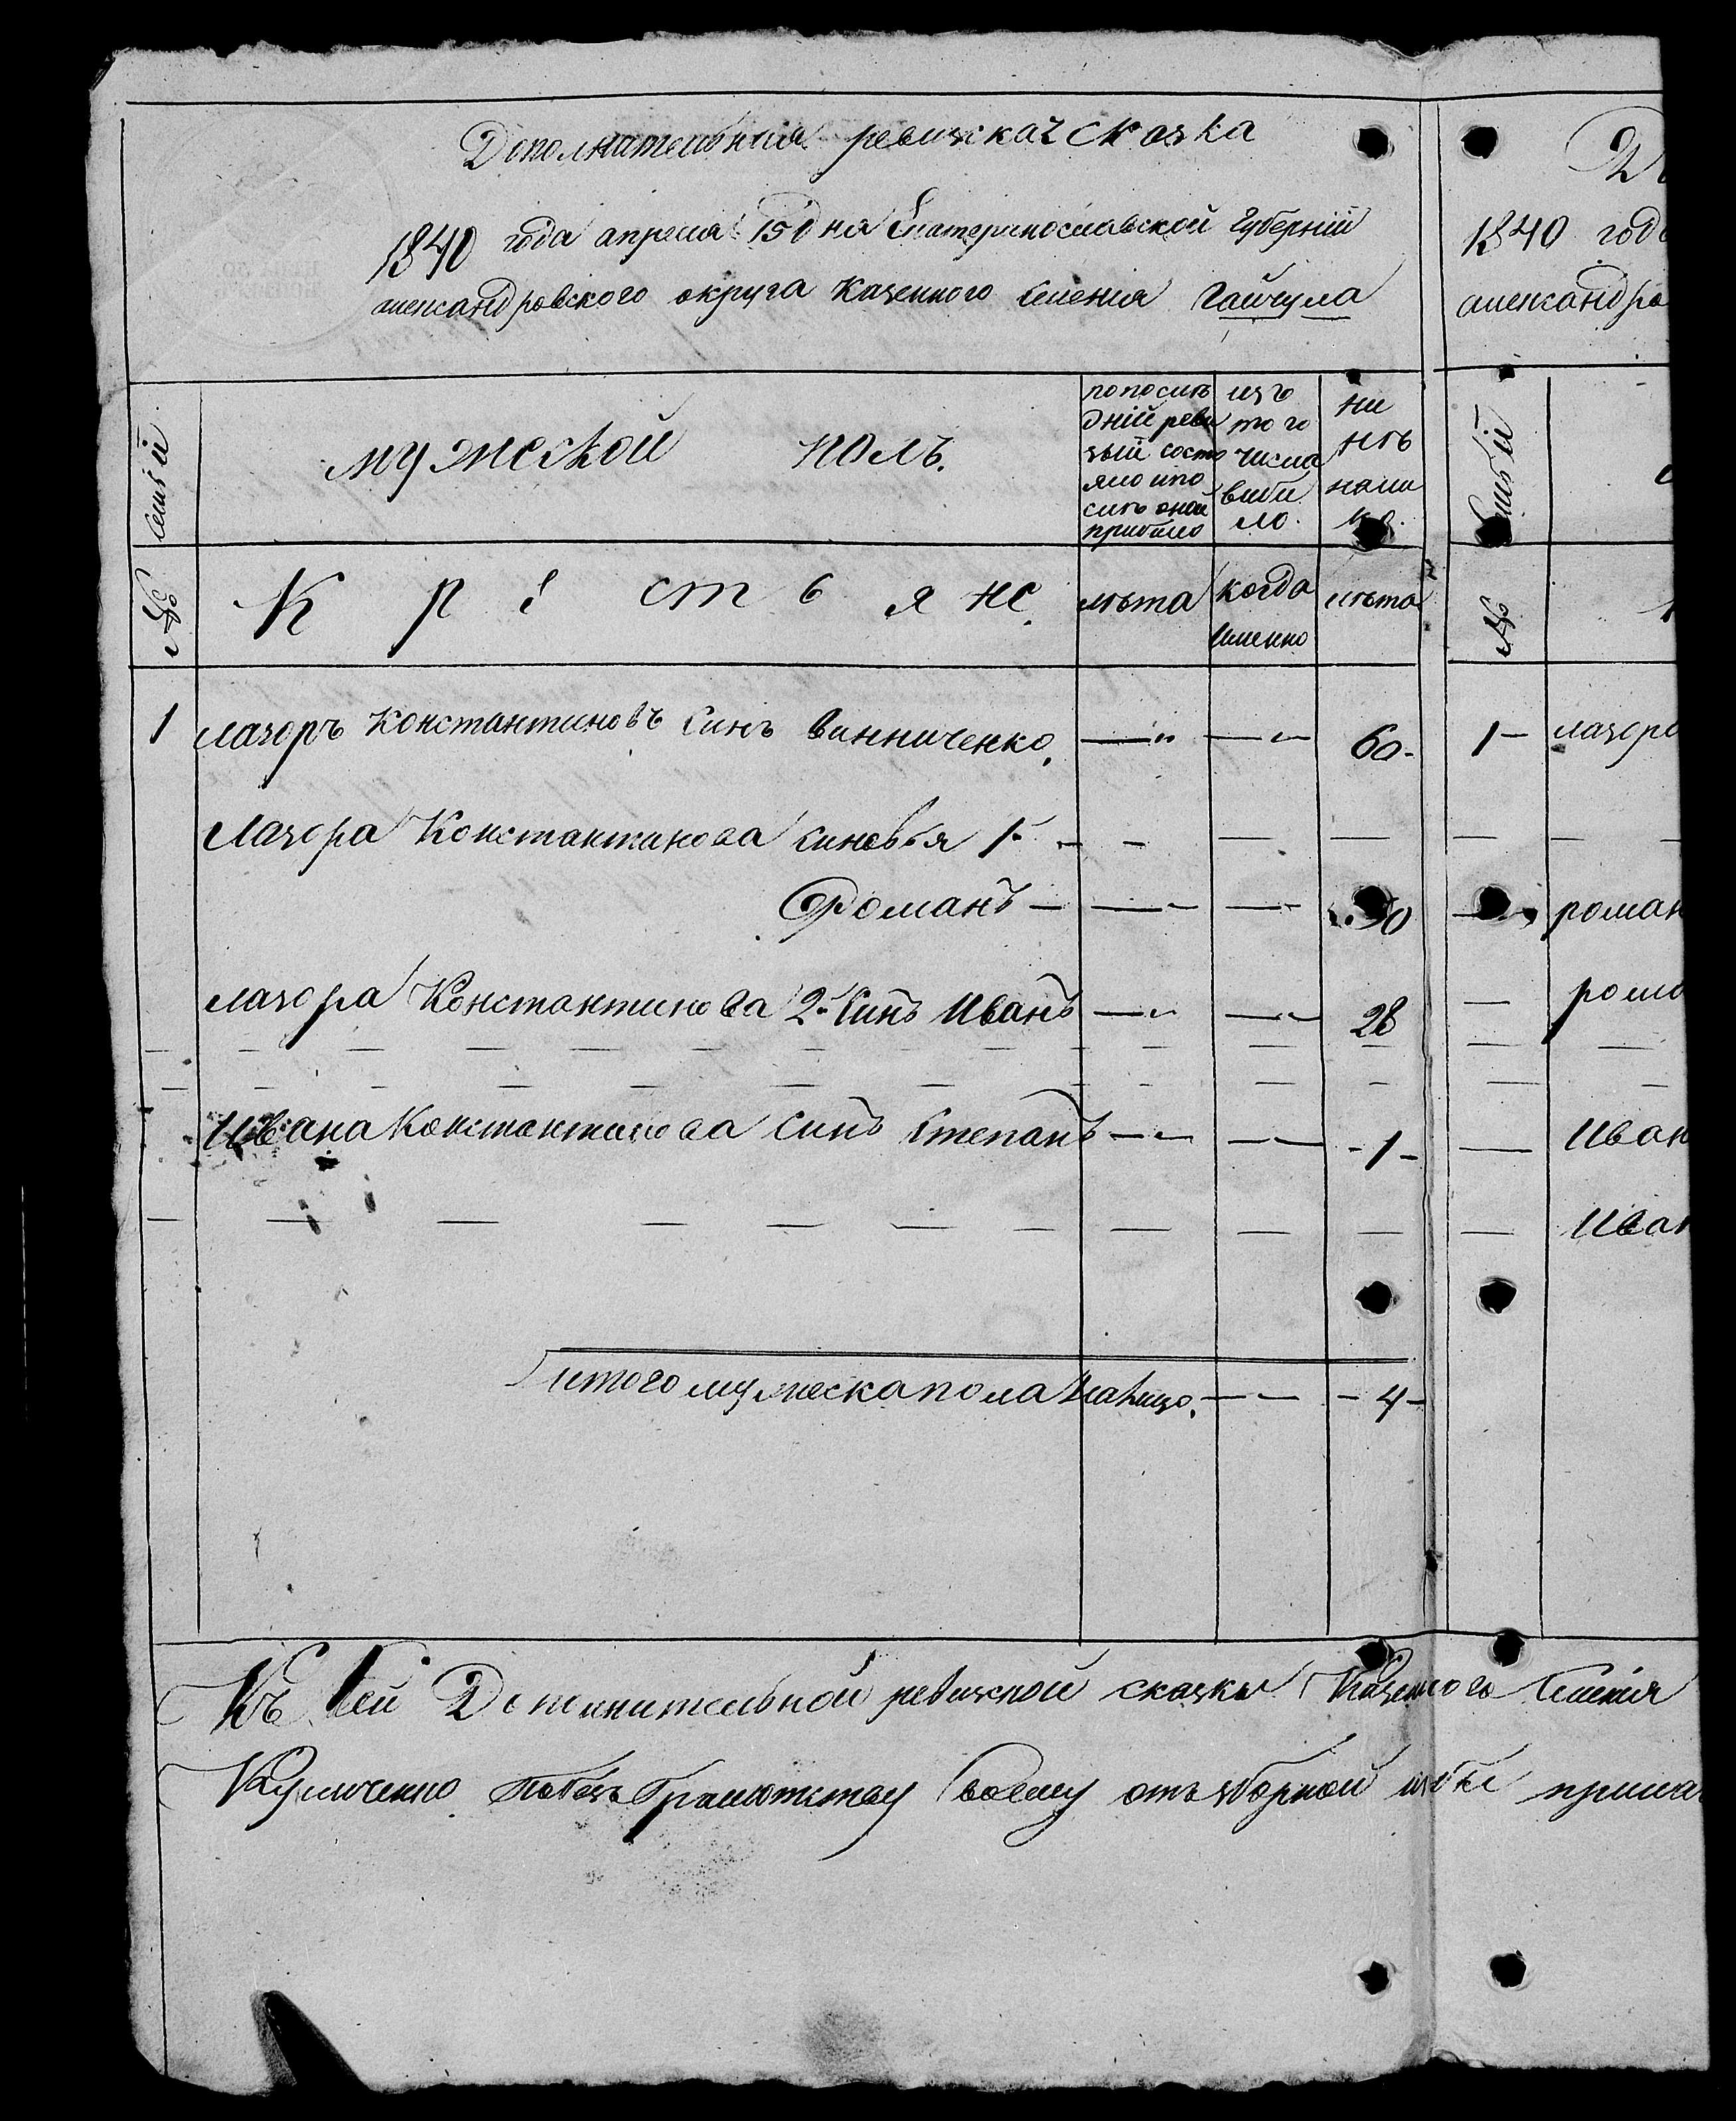 Дополнительная ревизская сказка
1840 года апреля 15 дня Екатеринославской губерній
александровского округа Казенного имения Гайчула
№ семьй
мужеской полъ.
попослѣ
дній реви
зый состо
яло ипо
слѣ оной
прибило
изъ
того
числа
виби
ло.
ни
нѣ
нали
Крѣстьяне.
лѣта
когда
именно
лѣта
1 лазоръ Константиновъ Синъ Винниченко. 60
Лазора Константинова Синовья 1й
Романъ 30
Лазора Константинова 2й Синъ Иванъ 28
Ивана Константинова Синъ Степанъ 1
итого мужеска пола Налицо. 4
Къ сей Дополнительной ревизкой сказки Казенного Имѣнія
отъ зборной избы
1840 года
александро
№ семьй
1 лазора
роман
рома
Иван
Иван